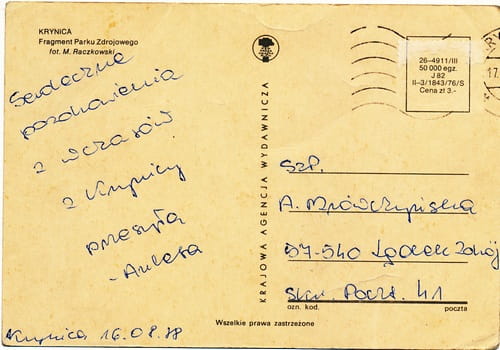 KRYNICA
Fragment Parku Zdrojowego
fot. M. Raczkowski
Serdeczne
pozdrowienia
z wczasów
z Krynicy
przesyła
Krynica 16.08.88
KRAJOWA AGENCJA WYDAWNICZA
26-4911/III
50 000 egz.
J 82
II-3/1843/76/S
Cena zł 3.-
RY
17
Szp.
A. Mrówczyńska
57-540 Lądek Zdrój
Skr. Poczt. 41
ozn. kod. poczta
Wszelkie prawa zastrzeżone